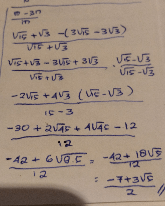 m - 3n
m
√15 + √3 - (3√15 - 3√3)
√15 + √3
√15 + √3 - 3√15 + 3√3 · √15 - √3
√15 + √3 √15 - √3
-2√15 + 4√3 (√15 - √3)
15 - 3
-30 + 2√45 + 4√45 - 12
12
-42 + 6√9.5 = -42 + 18√5
12 12
= -7 + 3√5
2 //